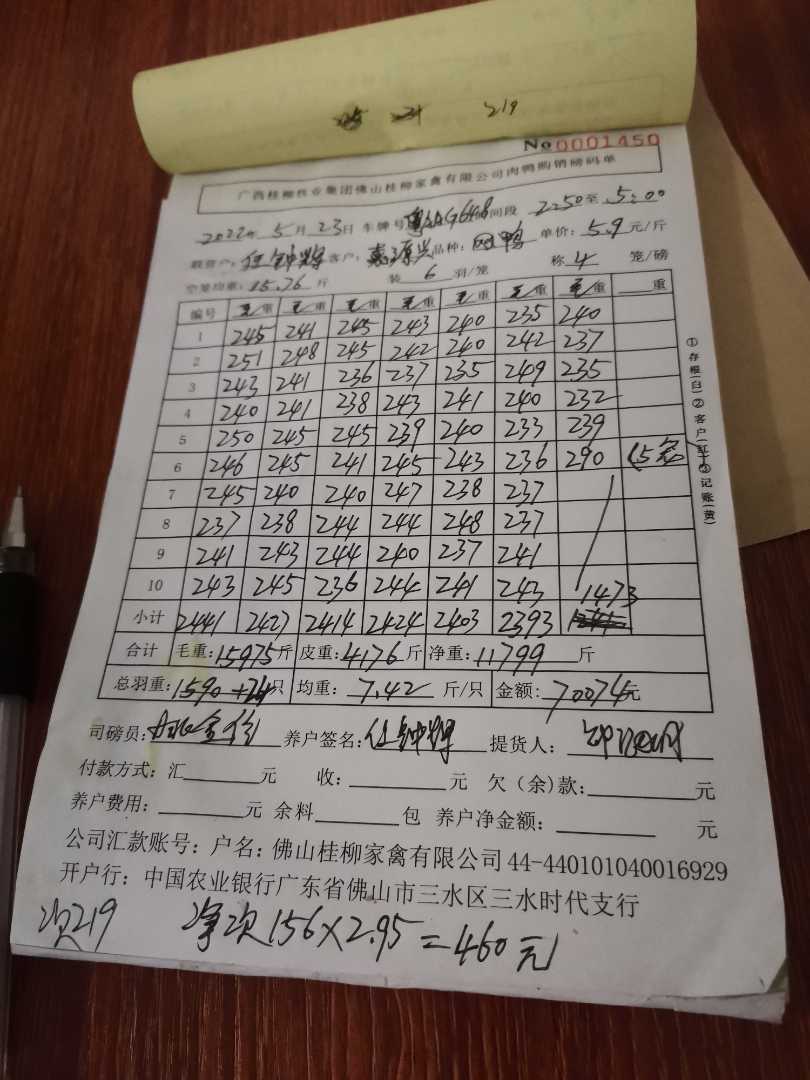 219
No 0001450
广西桂柳牧业集团佛山桂柳家禽有限公司肉鸭购销磅码单
2022年 5月 23日 车牌号 时间段 2:50 至 5:00
联营户: 任钟辉 客户: 嘉源兴 品种: 鸭 单价: 5.9 元/斤
空笼均重: 15.76 斤 装 6 羽/笼 称 4 笼/磅
编号 毛重 毛重 毛重 毛重 毛重 毛重 毛重 重
1 245 241 245 243 240 235 240
2 251 248 245 242 240 242 237
3 243 241 236 237 235 249 235
4 240 241 238 243 241 240 232
5 250 245 245 239 240 233 239
6 246 245 241 245 243 236 290 (5笼
7 245 240 240 247 238 237
8 237 238 244 244 248 237
9 241 243 244 240 237 241
10 243 245 236 244 241 243
小计 2441 2427 2414 2424 2403 2393 1473
合计 毛重: 15975 斤 皮重: 4176 斤 净重: 11799 斤
总羽重: 1590+24 只 均重: 7.42 斤/只 金额: 70074 元
司磅员: 养户签名: 任钟辉 提货人:
付款方式: 汇 元 收: 元 欠(余)款: 元
养户费用: 元 余料 包 养户净金额: 元
公司汇款账号: 户名: 佛山桂柳家禽有限公司 44-440101040016929
开户行: 中国农业银行广东省佛山市三水区三水时代支行
次219 净次156×2.95=460元
①存根(白)②客户(红)③记账(黄)